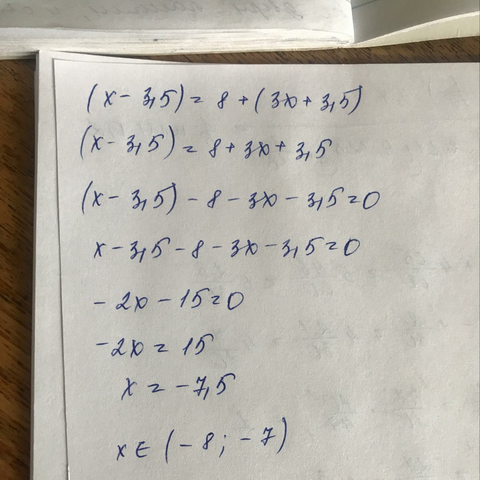 (x - 3,5) = 8 + (3x + 3,5)
(x - 3,5) = 8 + 3x + 3,5
(x - 3,5) - 8 - 3x - 3,5 = 0
x - 3,5 - 8 - 3x - 3,5 = 0
- 2x - 15 = 0
- 2x = 15
x = - 7,5
x ∈ (- 8 ; - 7)